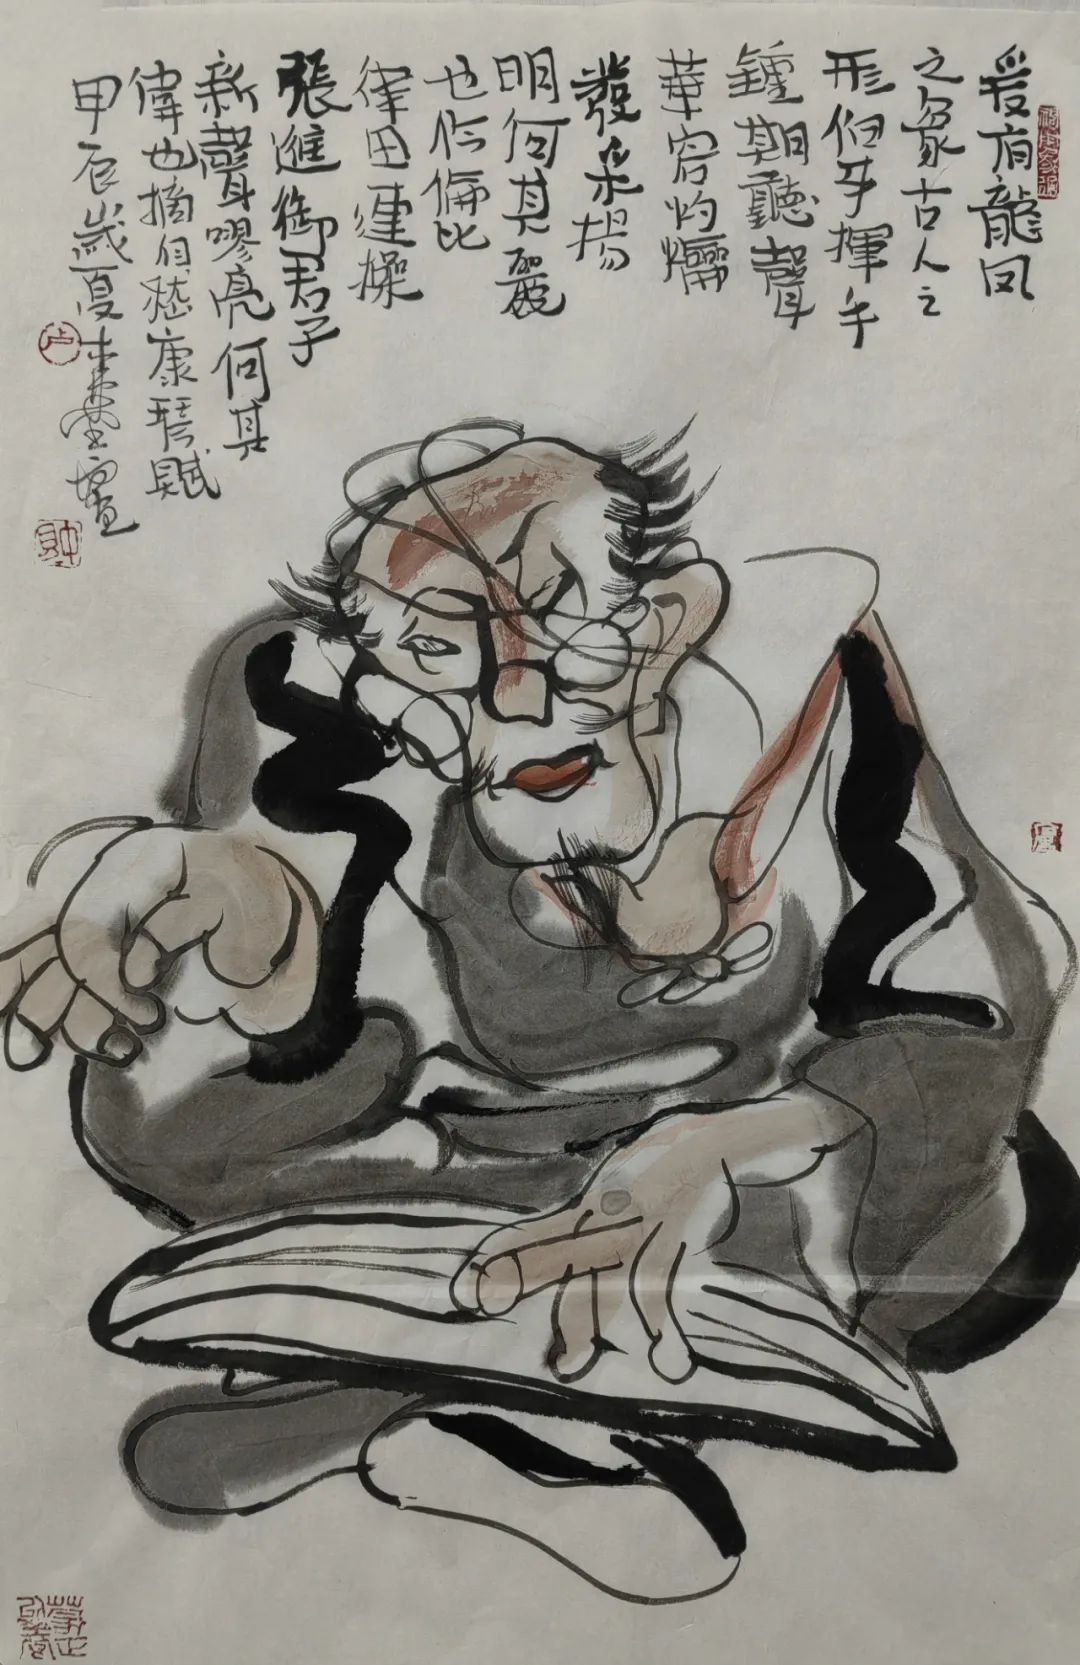 爰有龍鳳
之象古人之
形伯牙揮手
鍾期聽聲
華容灼爚
發采揚
明何其麗
也伶倫比
律田連操
張進御君子
新聲嘐亮何其
偉也摘自嵇康琴賦
甲辰歲夏